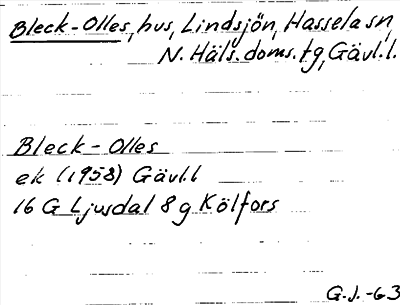 Bleck-Olles, hus, Lindsjön, Hassela sn,
N. Häls. doms. tg, Gävl. l.
Bleck-Olles
ek (1958) Gävl. l
16 G Ljusdal 8 g Kölfors
G. J. -63